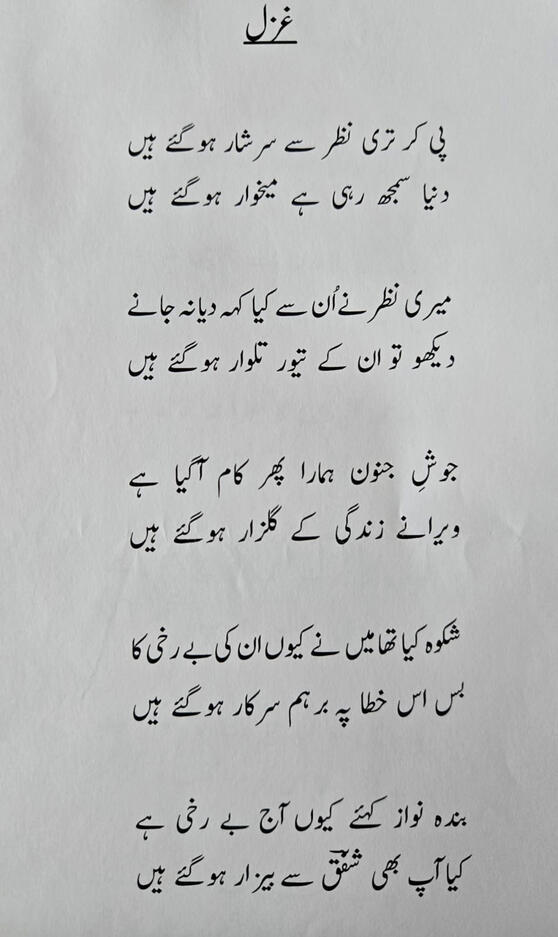 غزل
پی کر تری نظر سے سرشار ہوگئے ہیں
دنیا سمجھ رہی ہے میخوار ہوگئے ہیں
میری نظر نے اُن سے کیا کہہ دیا نہ جانے
دیکھو تو ان کے تیور تلوار ہوگئے ہیں
جوشِ جنون ہمارا پھر کام آگیا ہے
ویرانے زندگی کے گلزار ہوگئے ہیں
شکوہ کیا تھا میں نے کیوں ان کی بے رخی کا
بس اس خطا پہ برہم سرکار ہوگئے ہیں
بندہ نواز کہئے کیوں آج بے رخی ہے
کیا آپ بھی شفقؔ سے بیزار ہوگئے ہیں